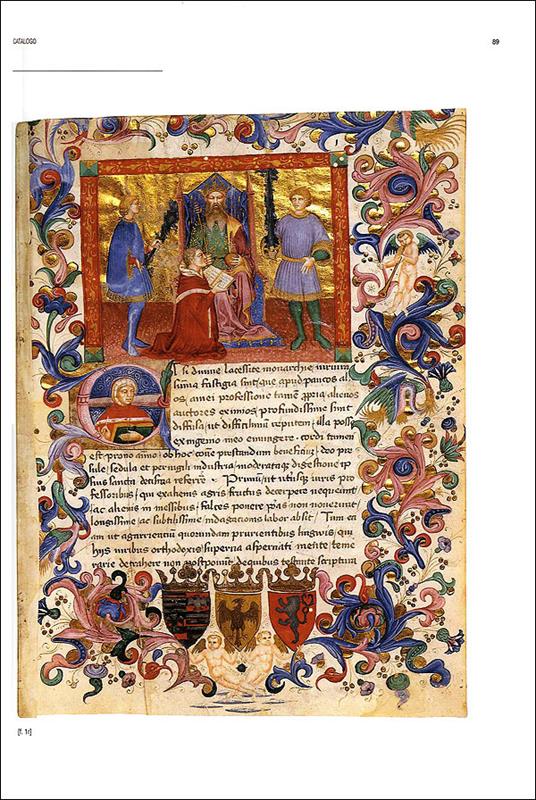 CATALOGO
89
divine lacessite monarchie,
fastigia apud paucos ali
os, a mei professione alienos
auctores eximios profundissime sint
diffusa, ut difficilium reputem illa posse
ex ingenio meo emungere. cordi tamen
est prono animo ob hoc prestandum deo pro
sule, sedula et pervigili industria, digestione ip
sius sancti referre. ut iuris pro
fessoribus, qui ex alienis agris fructus decerpere nequeunt
ac alienis in messibus, falces ponere non noverunt
longissime, ac subtilissime indagationis labor absit. Tum
am ut quorundam prurientibus linguis, qui
hys iuribus orthodoxis superna aspernati mente, teme
rarie detrahere non de quibus testante scriptura
[f. 1r]